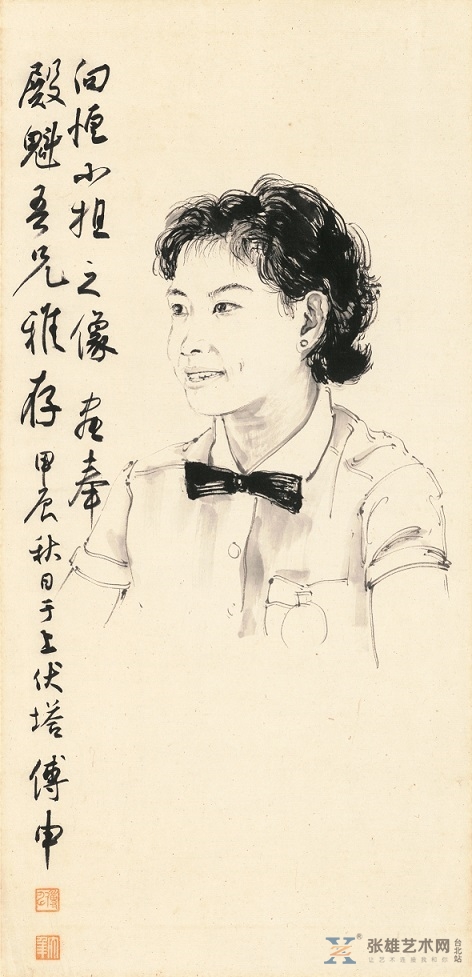 向恒小姐之像 畫奉
殿魁吾兄雅存 甲辰秋日于上伏塔 傅申
张雄艺术网
台北站